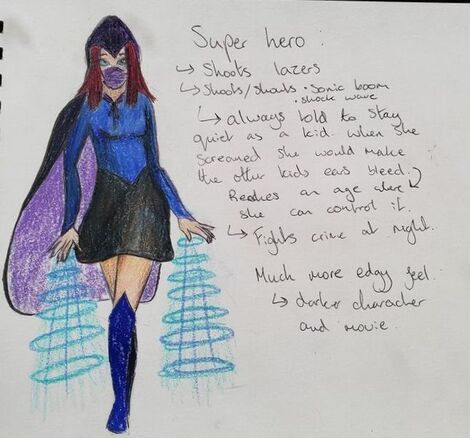 Super hero :
↳ Shoots lazers
↳ Shoots/shouts • Sonic boom
• shock wave
↳ always told to stay
quiet as a kid. when she
screamed she would make
the other kids ears bleed.
Reaches an age where
she can control it.
↳ Fights crime at night.
Much more edgy feel.
↳ darker character
and movie.